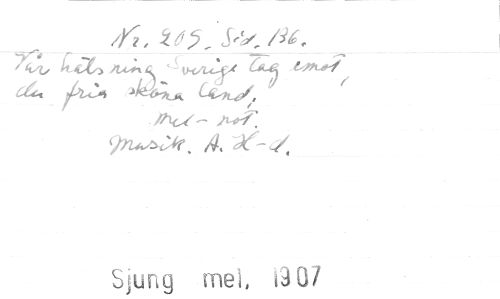 Nr. 209. Sid. 136.
Vår hälsning Sverige tag emot,
du fria sköna land,
mel- not.
Musik. A. H-d.
Sjung mel, 1907